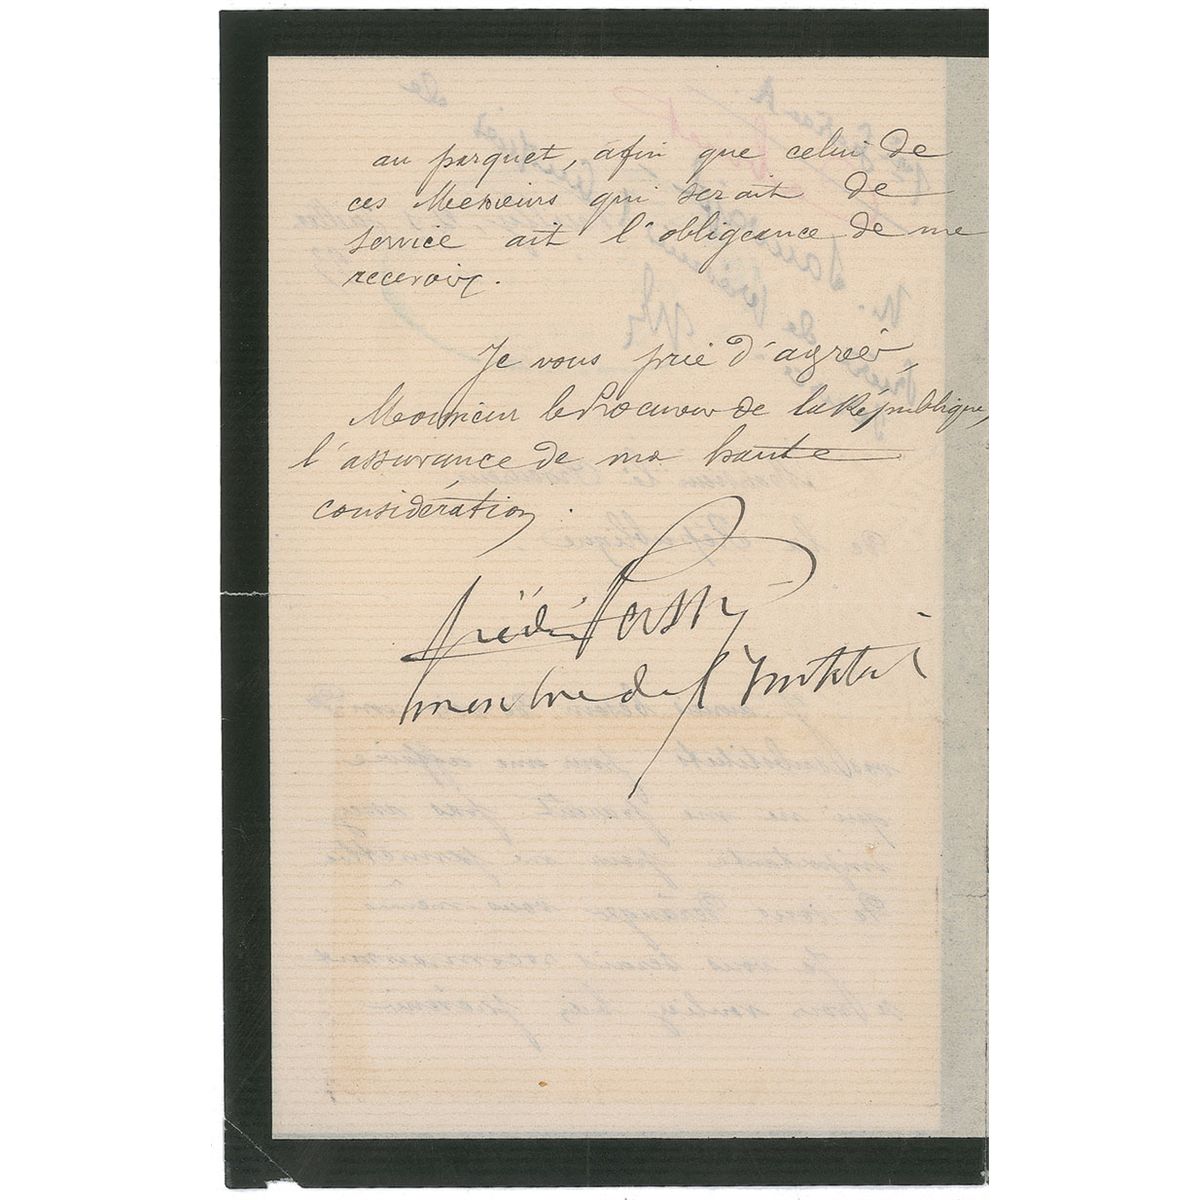 au parquet, afin que celui de
ces Messieurs qui serait de
service ait l'obligeance de me
recevoir.
Je vous prie d'agréer,
Monsieur le Procureur de la République,
l'assurance de ma haute
considération.
Frédéric Passy
membre de l'Institut